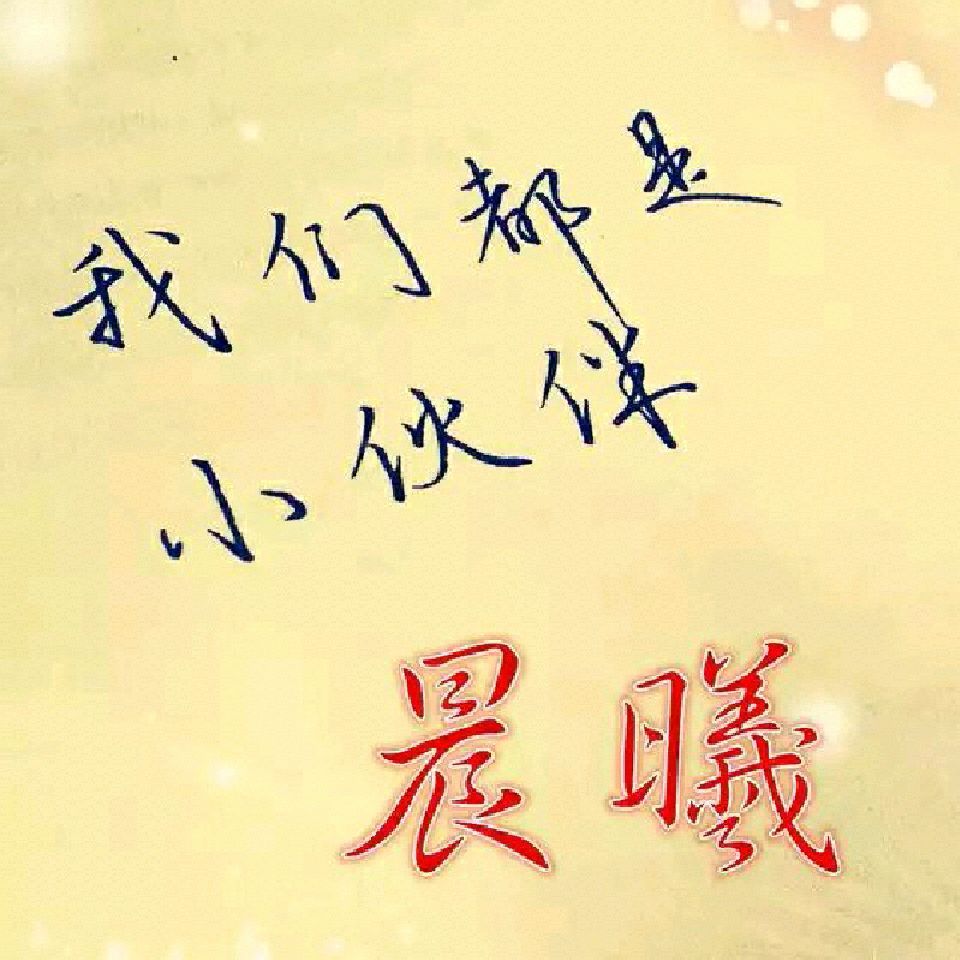 我们都是
小伙伴
晨曦